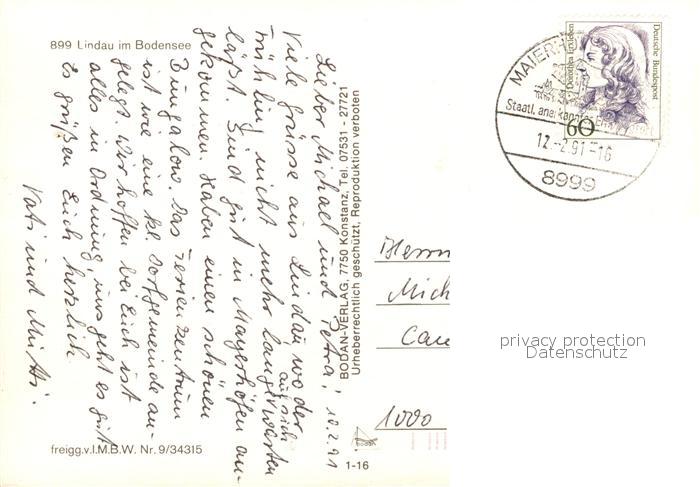 899 Lindau im Bodensee
Lieber Michael und Petra! 10.2.91
Viele Grüsse aus Lindau, wo der
Frühling nicht mehr lange auf sich warten
läßt. Sind gut in Mayerhöfen an-
gekommen. Haben einen schönen
Bungalow. Das Ferienzentrum
ist wie eine kl. Dorfgemeinde an-
gelegt. Wir hoffen bei Euch ist
alles in Ordnung, uns geht es gut
Es grüßen Euch herzlich
und
freigg.v.I.M.B.W. Nr. 9/34315
BODAN-VERLAG, 7750 Konstanz, Tel. 07531 - 27721
Urheberrechtlich geschützt, Reproduktion verboten
1-16
Deutsche Bundespost
Dorothea Erxleben
60
MAIERHÖ
Staatl. anerkannter
12.-2.91-16
8999
Herrn
Mich
1000
privacy protection
Datenschutz